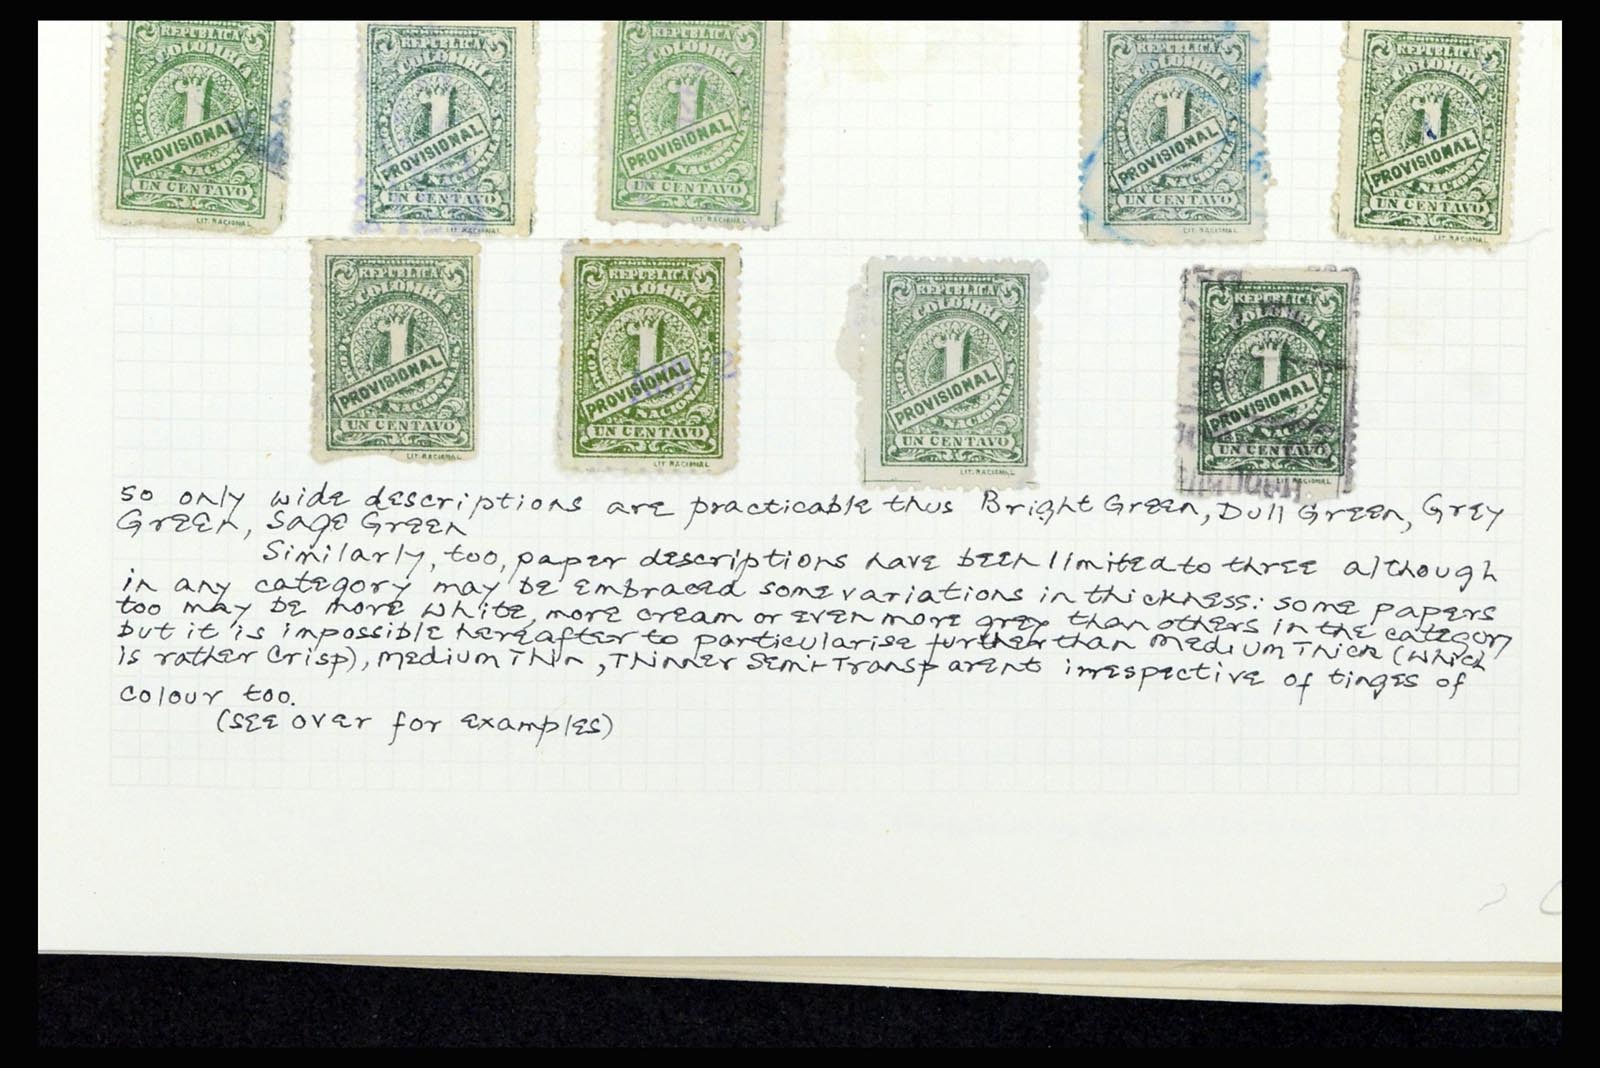 REPUBLICA COLOMBIA 1 PROVISIONAL CORREOS NACIONALES UN CENTAVO
LIT. NACIONAL
REPUBLICA COLOMBIA 1 PROVISIONAL CORREOS NACIONALES UN CENTAVO
LIT. NACIONAL
REPUBLICA COLOMBIA 1 PROVISIONAL CORREOS NACIONALES UN CENTAVO
LIT. NACIONAL
REPUBLICA COLOMBIA 1 PROVISIONAL CORREOS NACIONALES UN CENTAVO
LIT. NACIONAL
REPUBLICA COLOMBIA 1 PROVISIONAL CORREOS NACIONALES UN CENTAVO
LIT. NACIONAL
REPUBLICA COLOMBIA 1 PROVISIONAL CORREOS NACIONALES UN CENTAVO
LIT. NACIONAL
REPUBLICA COLOMBIA 1 PROVISIONAL CORREOS NACIONALES UN CENTAVO
LIT. NACIONAL
REPUBLICA COLOMBIA 1 PROVISIONAL CORREOS NACIONALES UN CENTAVO
LIT. NACIONAL
REPUBLICA COLOMBIA 1 PROVISIONAL CORREOS NACIONALES UN CENTAVO
so only wide descriptions are practicable thus Bright Green, Dull Green, Grey
Green, Sage Green
Similarly, too, paper descriptions have been limited to three although
in any category may be embraced some variations in thickness: some papers
too may be more white, more cream or even more grey than others in the category
but it is impossible hereafter to particularise further than Medium Thick (which
is rather crisp), Medium Thin, Thinner Semi-Transparent irrespective of tinges of
colour too.
(see over for examples)